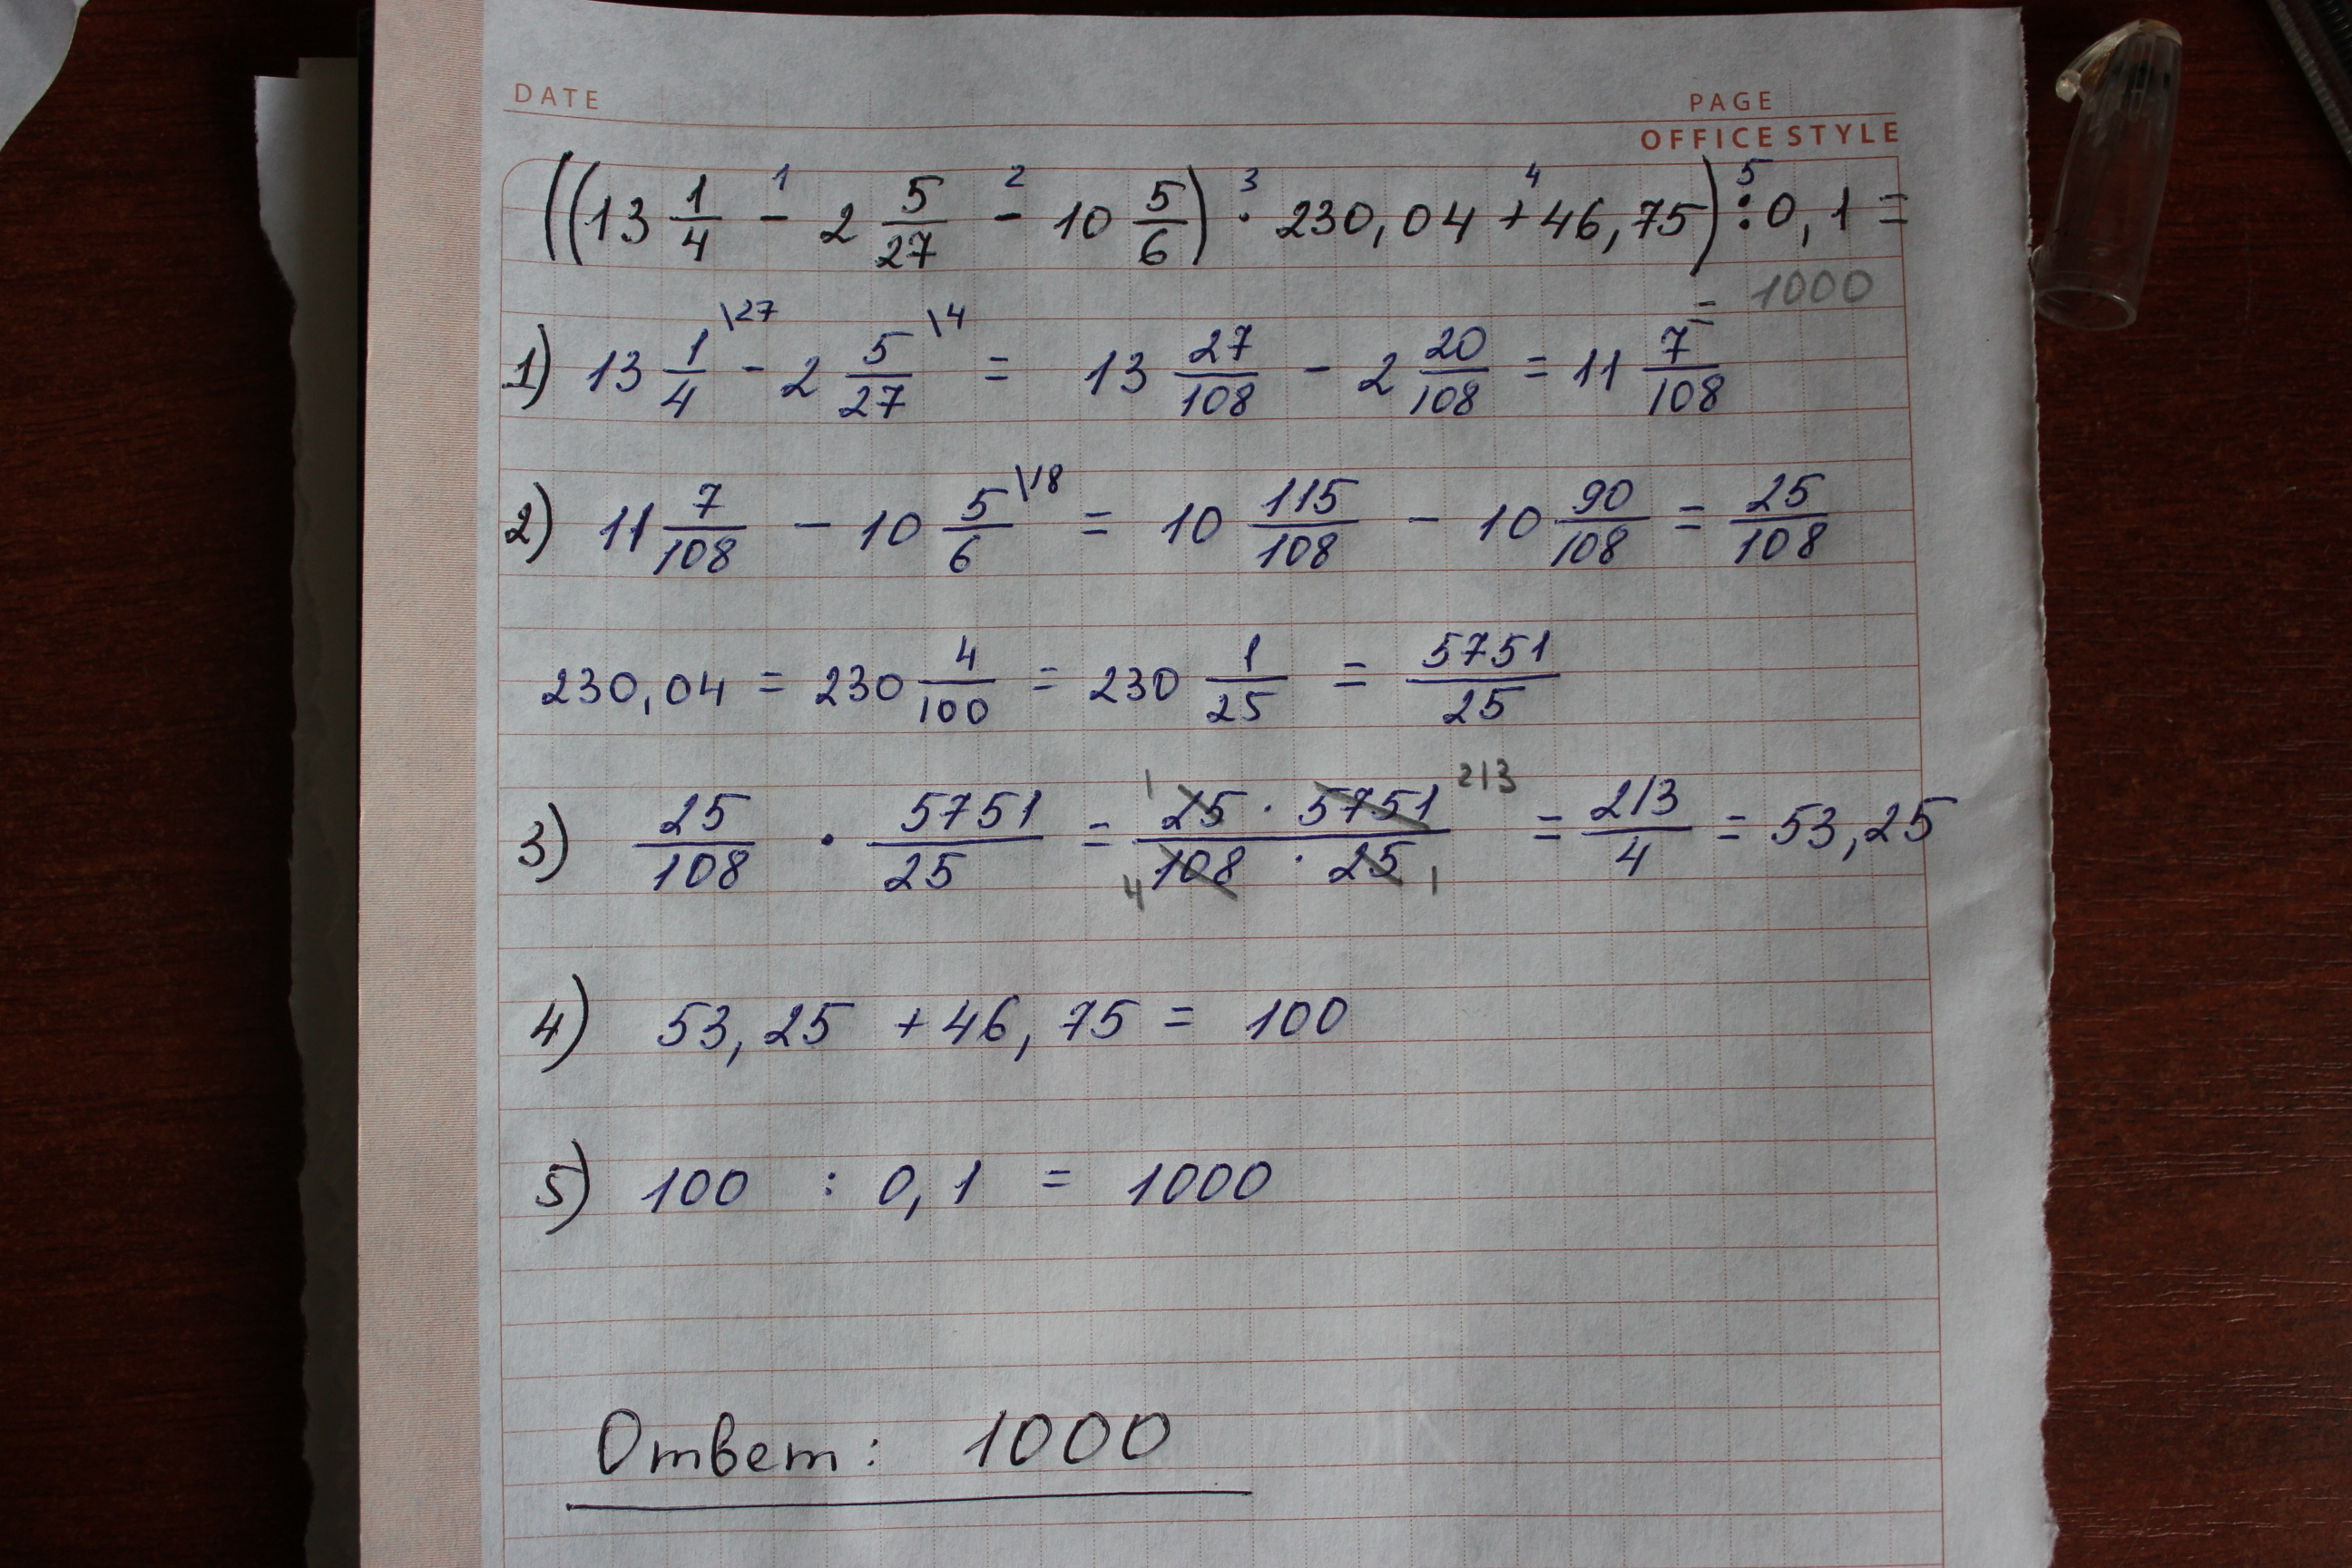 DATE
PAGE
OFFICE STYLE
((13 1/4 -¹ 2 5/27 -² 10 5/6) ·³ 230,04 +⁴ 46,75) :⁵ 0,1 =
= 1000
1) 13 1/4 \27 - 2 5/27 \4 = 13 27/108 - 2 20/108 = 11 7/108
2) 11 7/108 - 10 5/6 \18 = 10 115/108 - 10 90/108 = 25/108
230,04 = 230 4/100 = 230 1/25 = 5751/25
3) 25/108 · 5751/25 = ¹25 · 5751 ²¹³ / ₄108 · 25 ₁ = 213/4 = 53,25
4) 53,25 + 46,75 = 100
5) 100 : 0,1 = 1000
Ответ: 1000